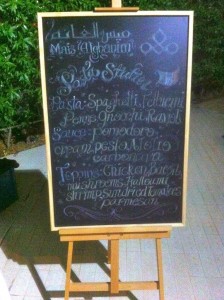 ميس الغانم
Mais Alghanim
Pasta Station
Pasta: Spaghetti, Fettucini
Penne, Gnocchi, Ravioli
Sauce: pomodoro,
cream, pesto,
carbonara
Toppings: Chicken, beef,
mushrooms, halloumi
shrimp, sundried tomatoes
parmesan